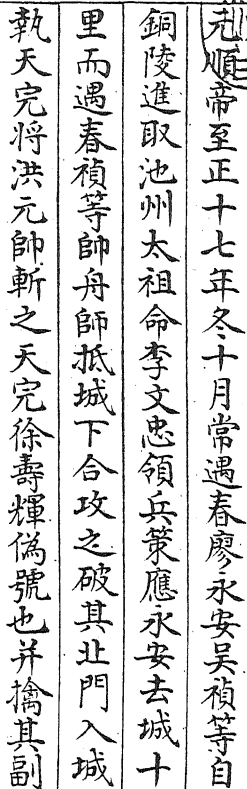 元順帝至正十七年冬十月常遇春廖永安吴禎等自
銅陵進取池州太祖命李文忠領兵策應永安去城十
里而遇春禎等帥舟師抵城下合攻之破其北門入城
執天完将洪元帥斬之天完徐壽輝偽號也并擒其副